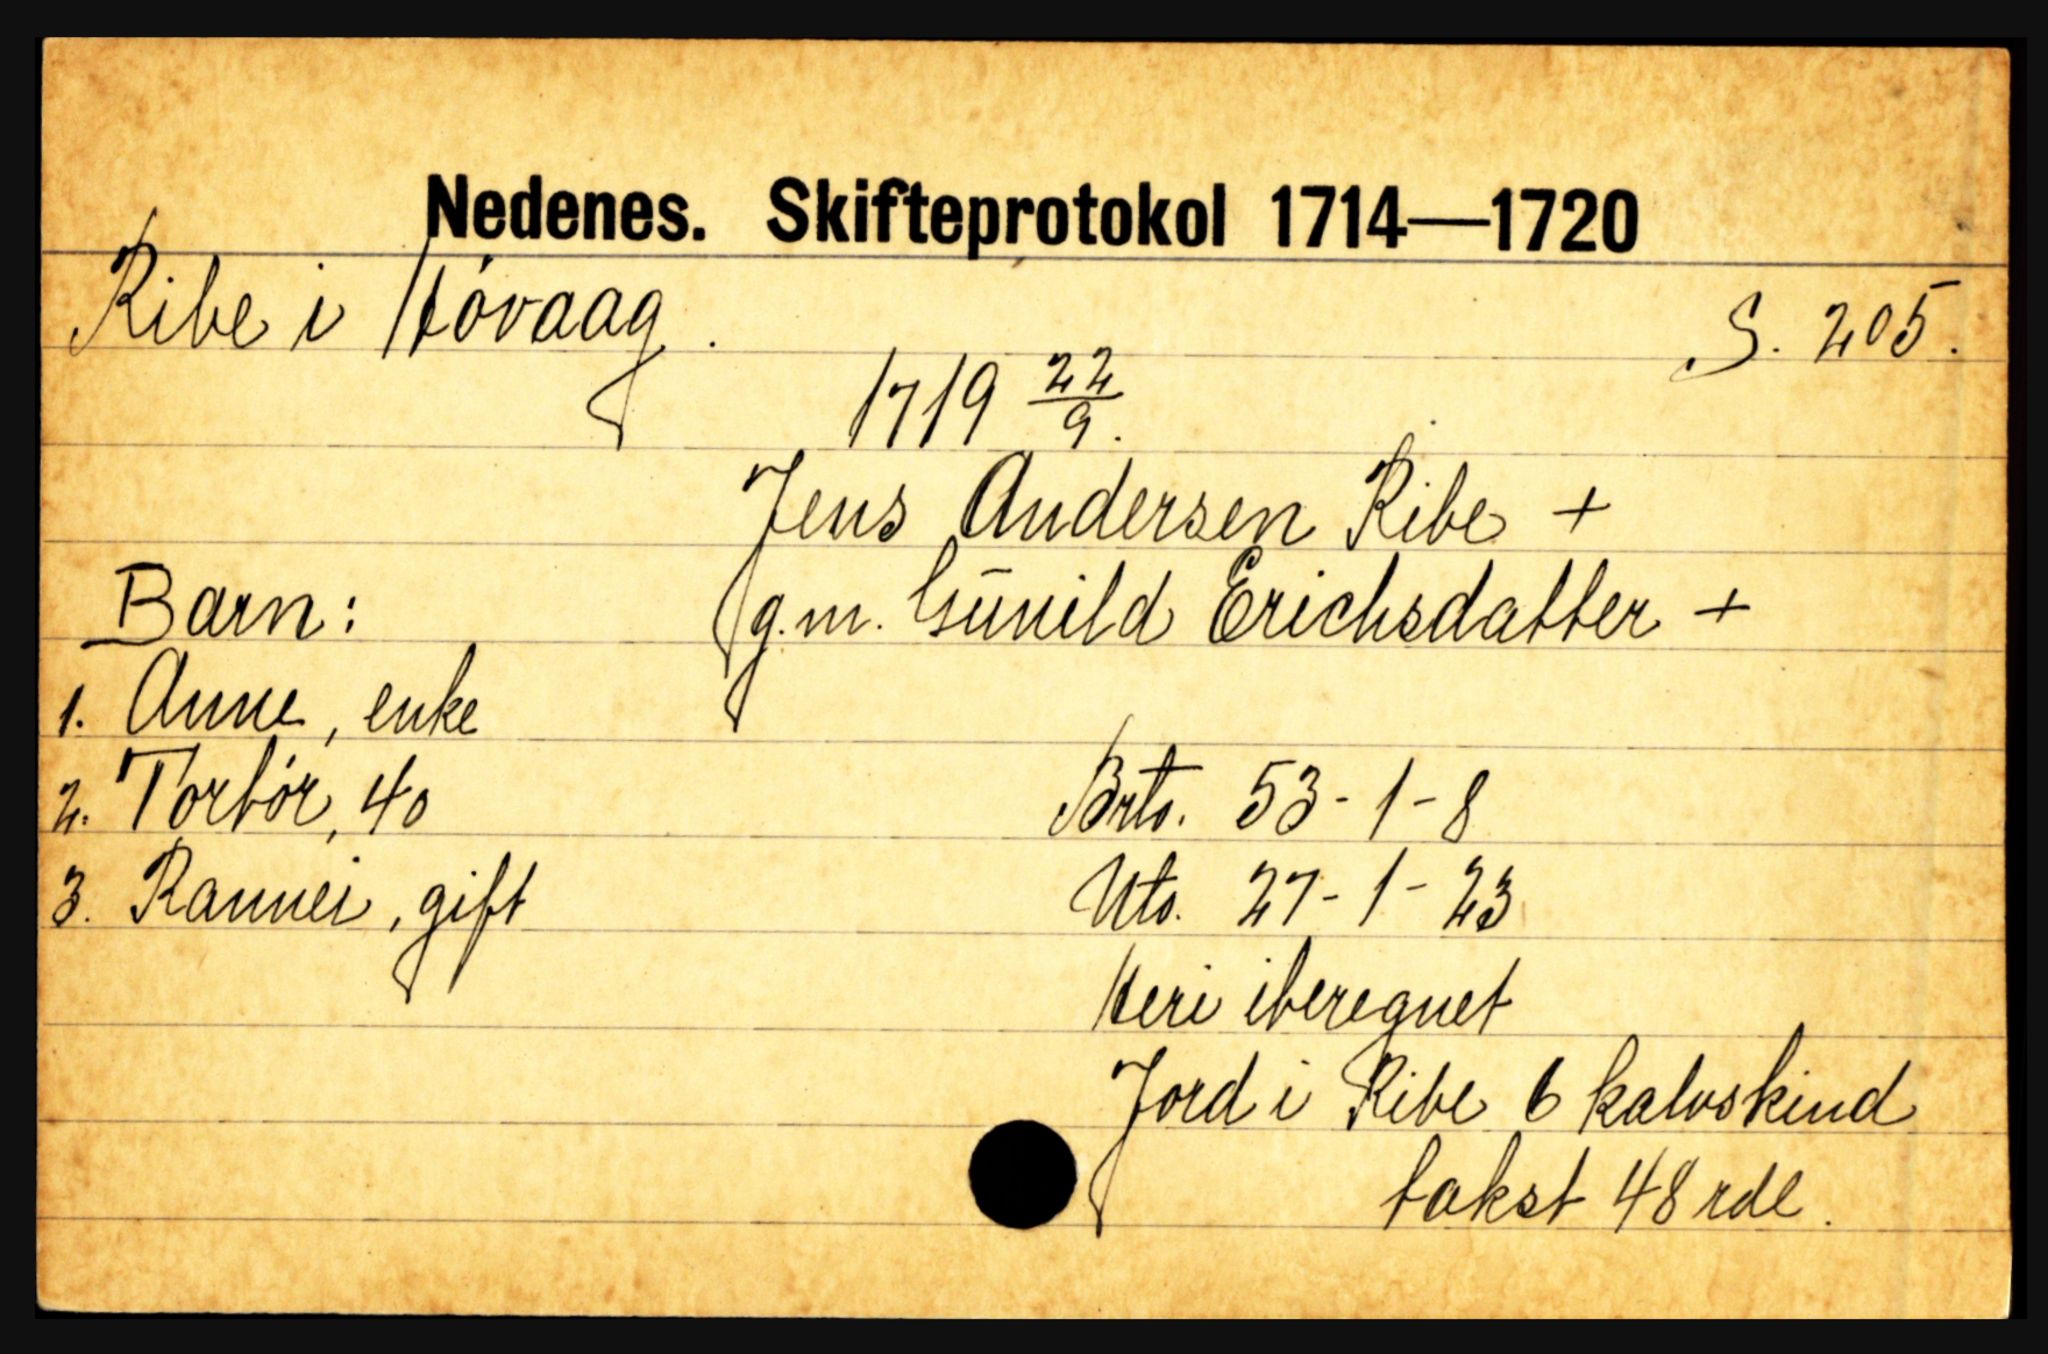 Nedenes. Skifteprotokol 1714—1720
Ribe i Hóvaag. S. 205.
1719 22/9.
Jens Andersen Ribe +
g.m. Gunild Erichsdatter +
Barn:
1. Anne, enke
2. Torbór, 40
3. Rannei, gift
Brto. 53-1-8
Nto. 27-1-23
Heri iberegnet
Jord i Ribe 6 kalvskind
takst 48 rdl.